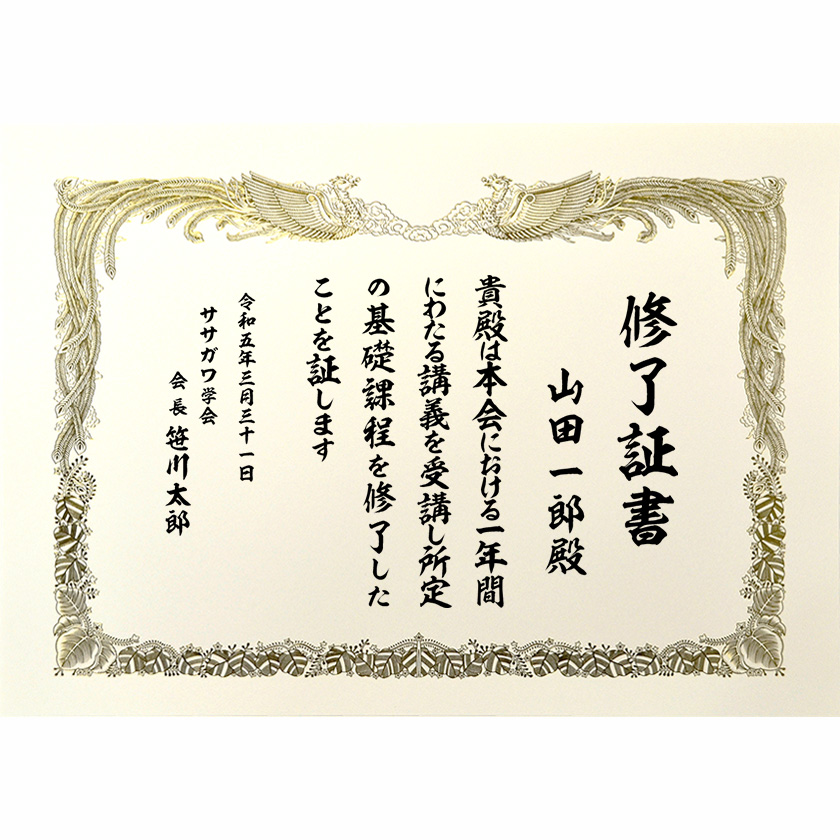 修了証書
山田一郎殿
貴殿は本会における一年間
にわたる講義を受講し所定
の基礎課程を修了した
ことを証します
令和五年三月三十一日
ササガワ学会
会長 笹川太郎